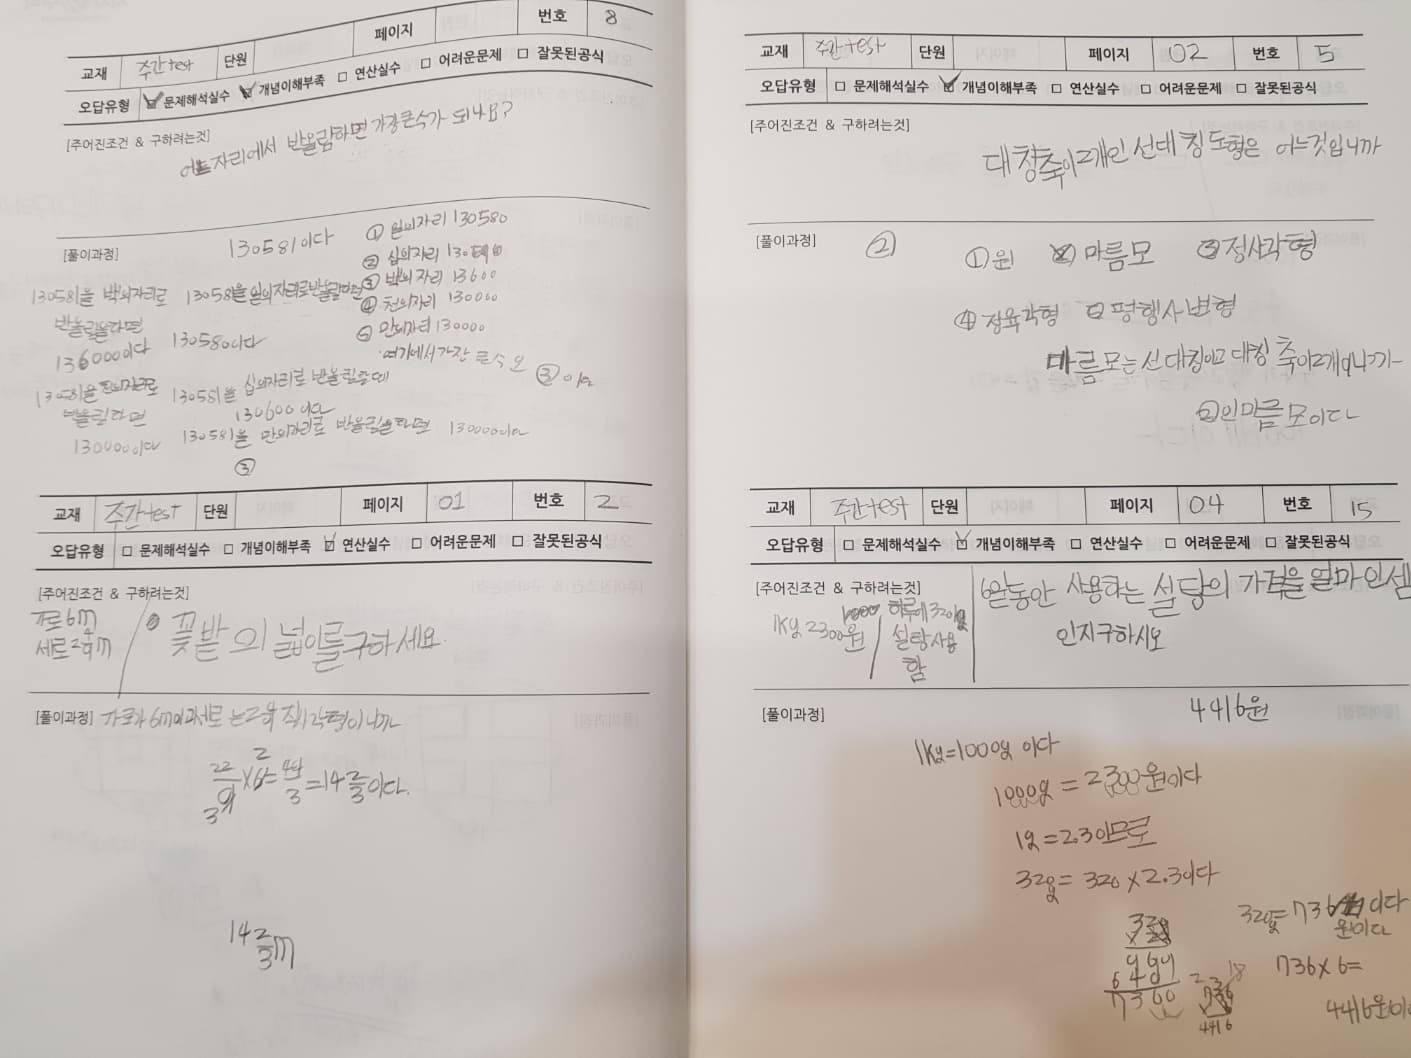 교재 주간test 단원 페이지 번호 8
오답유형 문제해석실수 개념이해부족 연산실수 어려운문제 잘못된공식
[주어진조건 & 구하려는것]
어느자리에서 반올림하면 가장큰수가 되나요?
[풀이과정]
130581이다
① 일의자리 130580
② 십의자리
③ 백의자리 13600
④ 천의자리 130000
⑤ 만의자리 130000
여기에서가장 큰수오 ③이다
130581을 백의자리로
반올림을하면
136000이다
130581을 일의자리로반올림하면
130580이다
130581을 천의자리로
반올림하면
130000이다
130581을 십의자리로 반올림
130600이다
130581을 만의자리로 반올림을하면 130000이다
③
교재 주간test 단원 페이지 01 번호 2
오답유형 문제해석실수 개념이해부족 연산실수 어려운문제 잘못된공식
[주어진조건 & 구하려는것]
가로6m
세로2 4/9m
꽃밭의 넓이를구하세요.
[풀이과정] 가로가 6m이고세로는2 4/9 직사각형이니까
22/9×6=44/3=14 2/3이다.
14 2/3m
교재 주간test 단원 페이지 02 번호 5
오답유형 문제해석실수 개념이해부족 연산실수 어려운문제 잘못된공식
[주어진조건 & 구하려는것]
대칭축이2개인 선대칭도형은 어느것입니까
[풀이과정]
②
①원 ②마름모 ③정사각형
④정육각형 평행사변형
마름모는선대칭이고 대칭축이2개이니까
②인마름모이다
교재 주간test 단원 페이지 04 번호 15
오답유형 문제해석실수 개념이해부족 연산실수 어려운문제 잘못된공식
[주어진조건 & 구하려는것]
1kg 2300원
하루에320g
설탕사용
함
6일동안 사용하는 설탕의 가격을 얼마인셈
인지구하시오
[풀이과정]
4416원
1kg=1000g 이다
1000g=2300원이다
1g=2.3이므로
320g=320×2.3이다
320
960
640
7360
320g=736이다
원이다
736×6=
736
4416
4416원이다